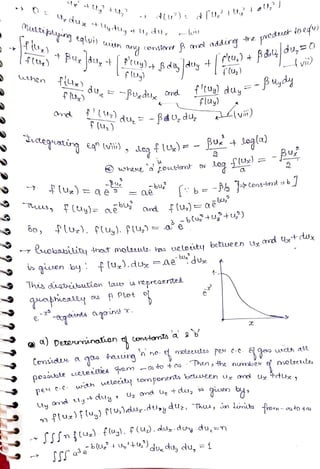 → 0 = u_x du_x + u_y du_y + u_z du_z — (vi)
Multiplying eq(vi) with any constant β and adding the product in eq(v)
[f'(u_x)/f(u_x) + βu_x] du_x + [f'(u_y)/f(u_y) + βu_y] du_y + [f'(u_z)/f(u_z) + βu_z] du_z = 0
(vii)
when f'(u_x)/f(u_x) du_x = -βu_x du_x and f'(u_y)/f(u_y) du_y = -βu_y dy
and f'(u_z)/f(u_z) du_z = -βu_z du_z (viii)
Integrating eqⁿ (viii), log f(u_x) = -βu_x²/2 + log(a)
where 'a' constant or log f(u_x)/a = -βu_x²/2
→ f(u_x) = a e^{-βu_x²/2} = a e^{-bu_x²} [∵ b = -β/2] → constant a b]
Thus, f(u_y) = a e^{-bu_y²} and f(u_z) = a e^{-bu_z²}
So, f(u_x). f(u_y). f(u_z) = a³ e^{-b(u_x²+u_y²+u_z²)}
→ Probability that molecule has velocity between u_x and u_x+du_x
is given by : f(u_x).du_x = A e^{-bu_x²} du_x
This distribution law is represented
graphically as a Plot of
e^{-x²} againts against x.
1
e^{-x²}
x
a) Determination of constants 'a' & 'b'
Consider a gas having 'n' no of molecules per c.c. of gas with all
possible velocities from -∞ to +∞. Then, the number of molecules
per c.c. with velocity components between u_x and u_x+du_x,
u_y and u_y+du_y, u_z and u_z+du_z is given by,
n f(u_x) f(u_y) f(u_z) du_x.du_y du_z. Thus, in limits from -∞ to +∞
→ ∫∫∫ n f(u_x) f(u_y). f(u_z). du_x. du_y du_z = n
→ ∫∫∫ a³ e^{-b(u_x²+u_y²+u_z²)} du_x du_y du_z = 1